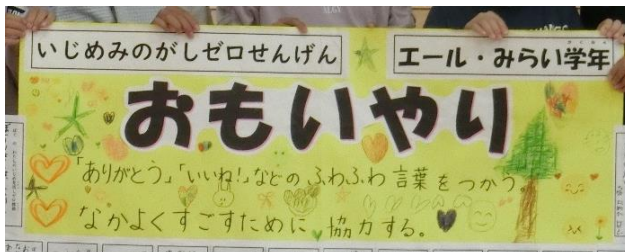 いじめみのがしゼロせんげん
エール・みらい学年
おもいやり
「ありがとう」「いいね!」などの ふわふわ 言葉をつかう。
なかよくすごすために 協力する。